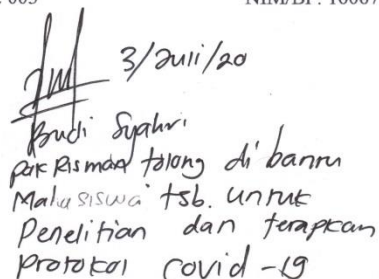 003 NIM/BP. 16067
3/Juli/20
Budi Syahri
pak Risman tolong di bantu
Mahasiswa tsb. untuk
Penelitian dan terapkan
protokol covid-19